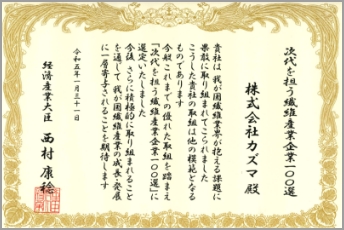 次代を担う繊維産業企業一〇〇選
株式会社カズマ 殿
貴社は 我が国繊維業界が抱える課題に
果敢に取り組まれてこられました
こうした貴社の取組は他の模範となる
ものであります
今般これまでの優れた取組を踏まえ
「次代を担う繊維産業企業一〇〇選」に
選定いたしました
今後 さらに積極的に取り組まれること
を通して 我が国繊維産業の成長・発展
に一層寄与されることを期待します
令和五年一月三十一日
経済産業大臣 西村 康稔